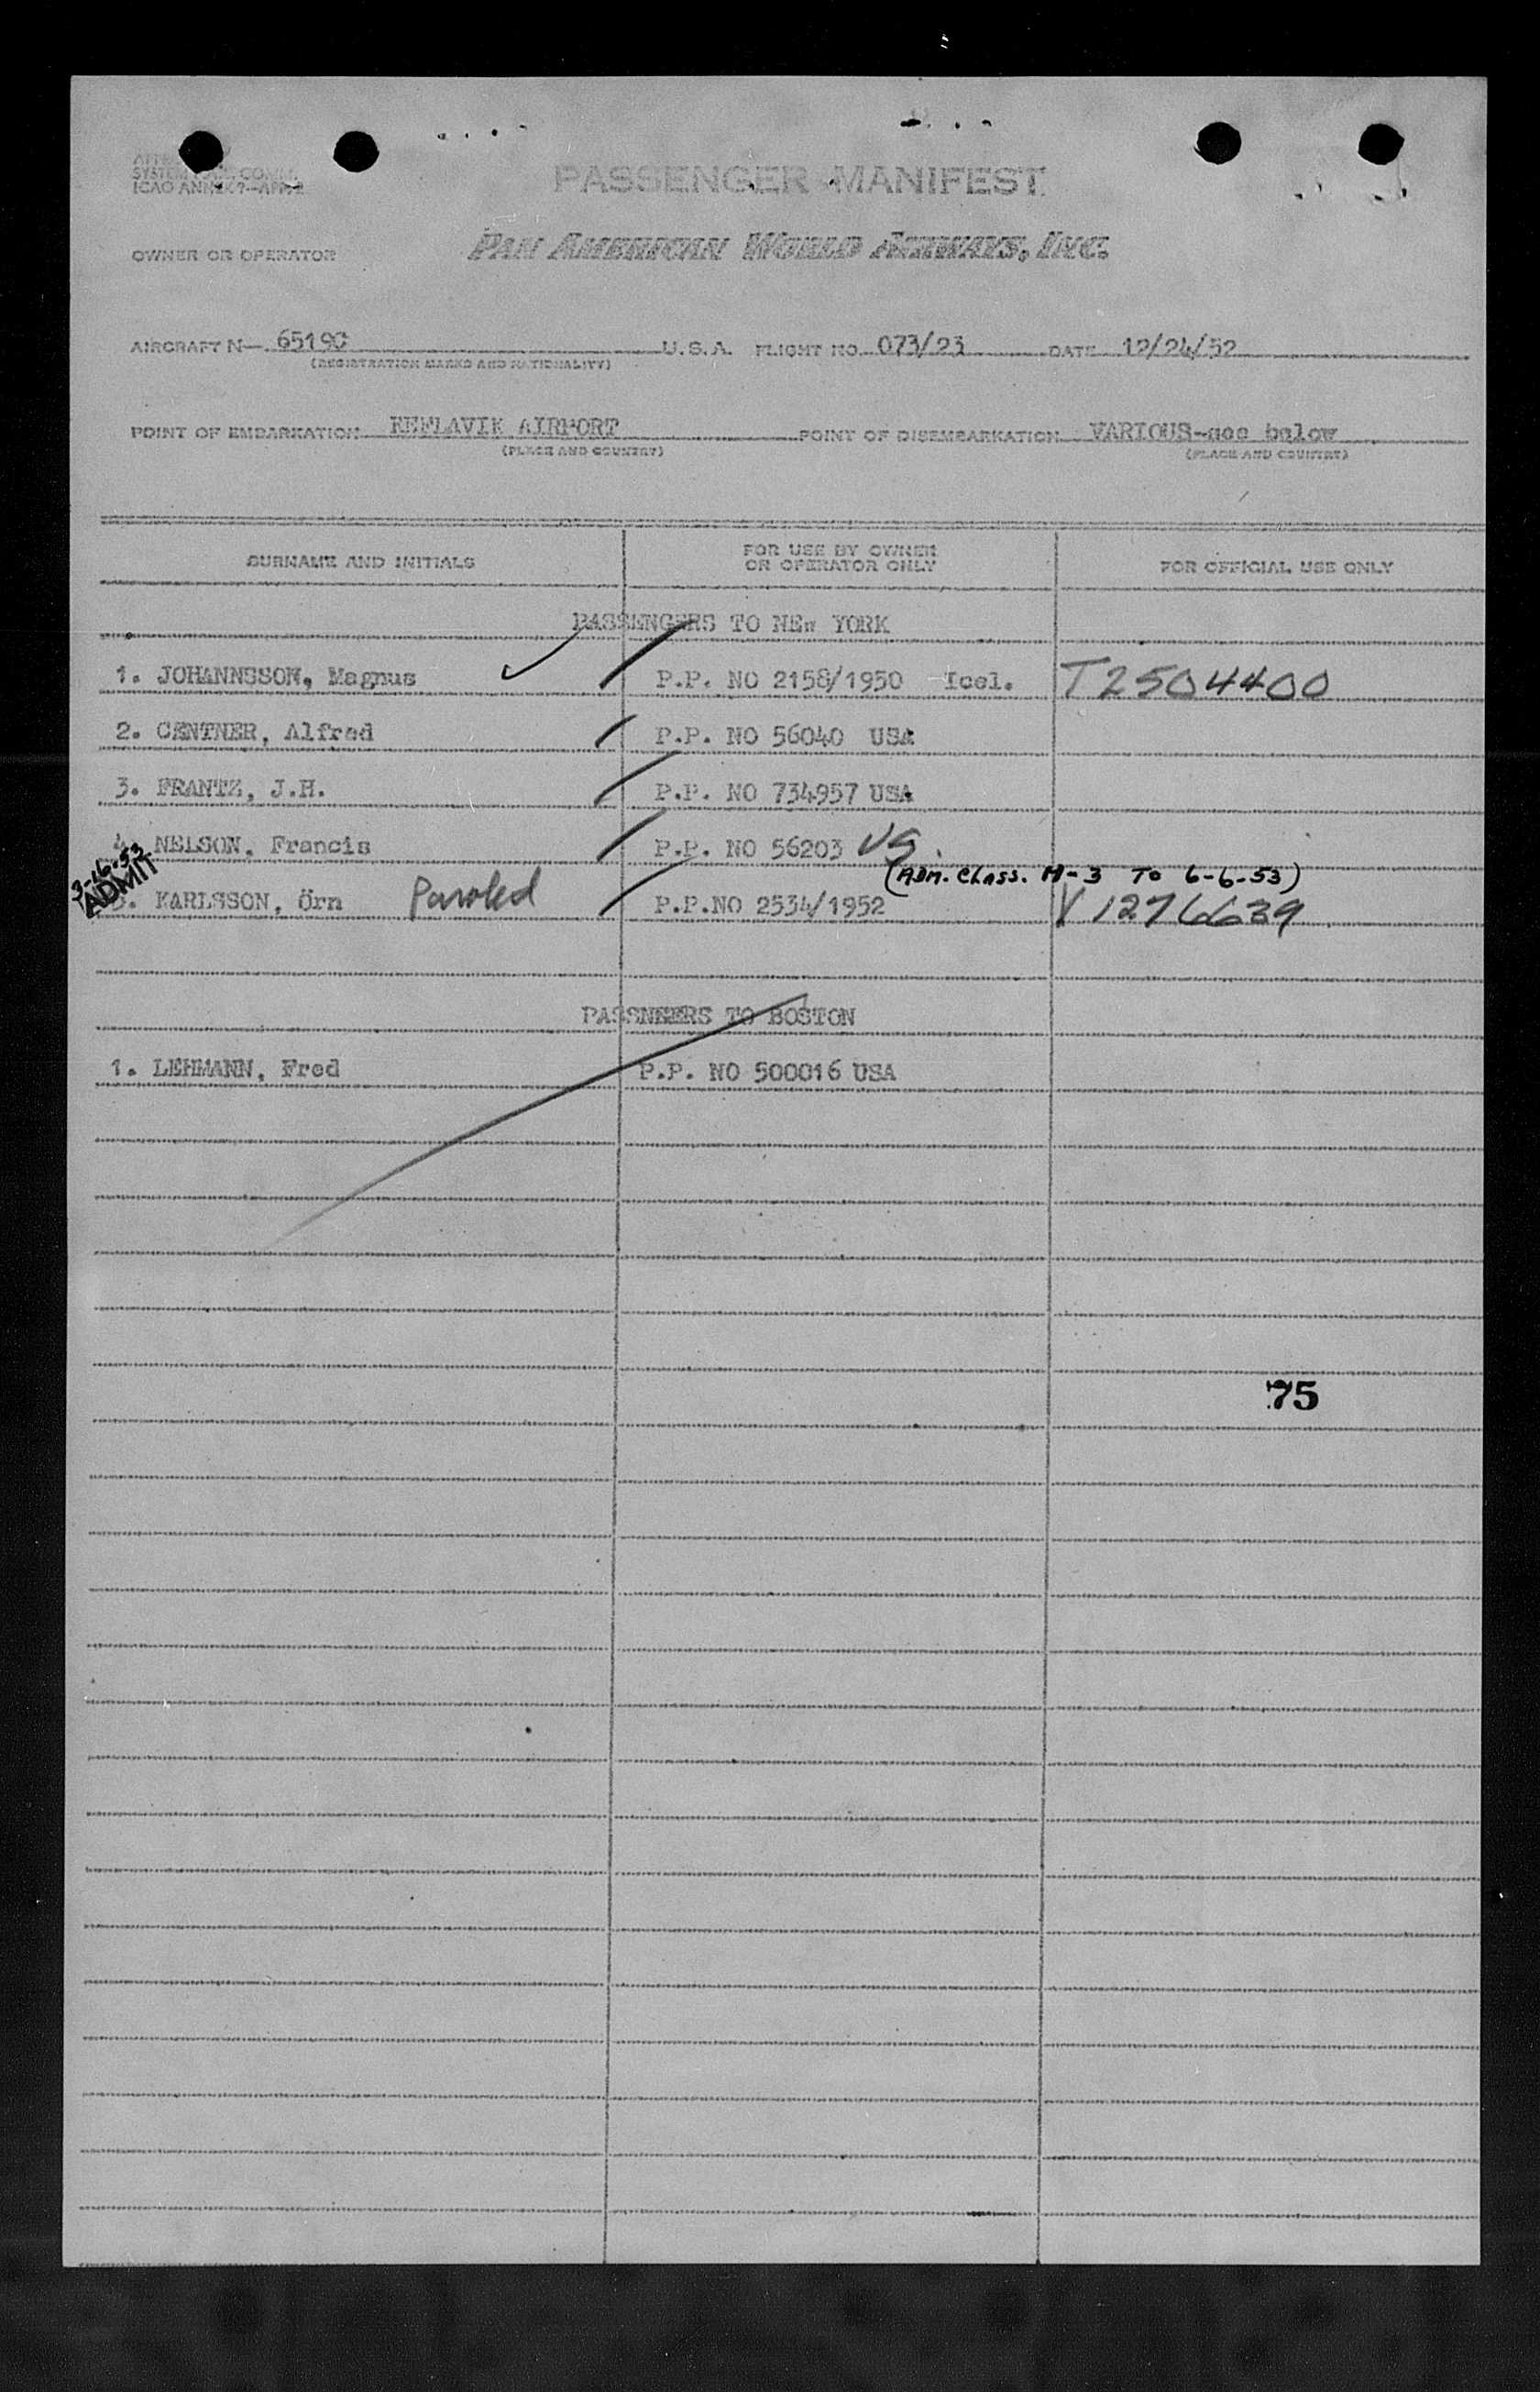 SYSTEM COMM.
ICAO ANNEX 9-APP. 2
PASSENGER MANIFEST
OWNER OR OPERATOR PAN AMERICAN WORLD AIRWAYS, INC.
AIRCRAFT N- 6519C U.S.A. FLIGHT NO. 073/23 DATE 12/24/52
(REGISTRATION MARKS AND NATIONALITY)
POINT OF EMBARKATION KEFLAVIK AIRPORT POINT OF DISEMBARKATION VARIOUS-see below
(PLACE AND COUNTRY) (PLACE AND COUNTRY)
SURNAME AND INITIALS FOR USE BY OWNER OR OPERATOR ONLY FOR OFFICIAL USE ONLY
PASSENGERS TO NEw YORK
1. JOHANNSSON, Magnus P.P. NO 2158/1950 Icel. T2504400
2. CENTNER, Alfred P.P. NO 56040 USA
3. FRANTZ, J.H. P.P. NO 734957 USA
4. NELSON, Francis P.P. NO 56203 US.
3-16-53 ADMIT (ADM. CLASS. H-3 TO 6-6-53)
5. KARLSSON, Örn Paroled P.P.NO 2534/1952 V1276639
PASSNEERS TO BOSTON
1. LEHMANN, Fred P.P. NO 500016 USA
75